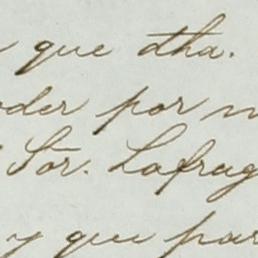 y que dha.
oder por n
Sor. Lafrag
y que par